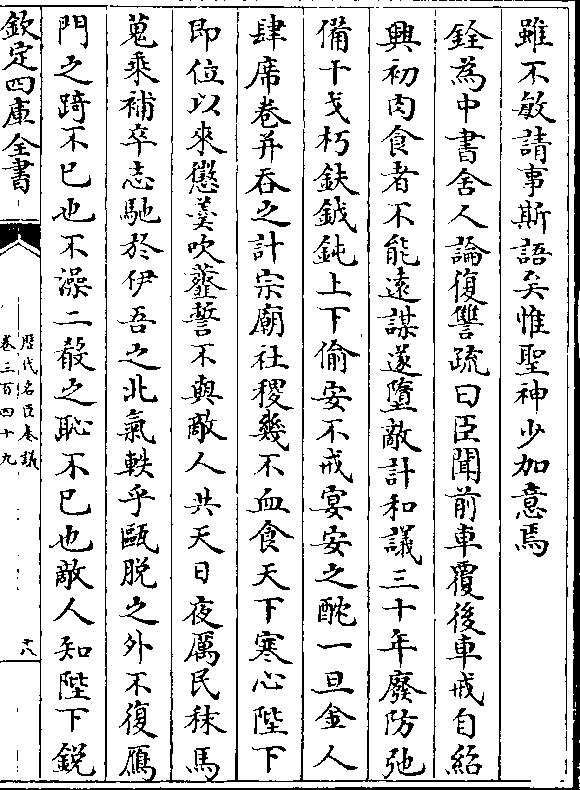 雖不敏請事斯語矣惟聖神少加意焉
銓為中書舍人論復讐疏曰臣聞前車覆後車戒自紹
興初肉食者不能遠謀遂墮敵計和議三十年廢防弛
備干戈朽鈇鉞鈍上下偷安不戒宴安之酖一旦金人
肆席卷并吞之計宗廟社稷幾不血食天下寒心陛下
即位以來懲羹吹虀誓不與敵人共天日夜厲民秣馬
蒐乘補卒志馳於伊吾之北氣軼乎甌脫之外不復鴈
門之踦不已也不澡二殽之恥不已也敵人知陛下銳
欽定四庫全書
歷代名臣奏議
卷三百四十九
十八